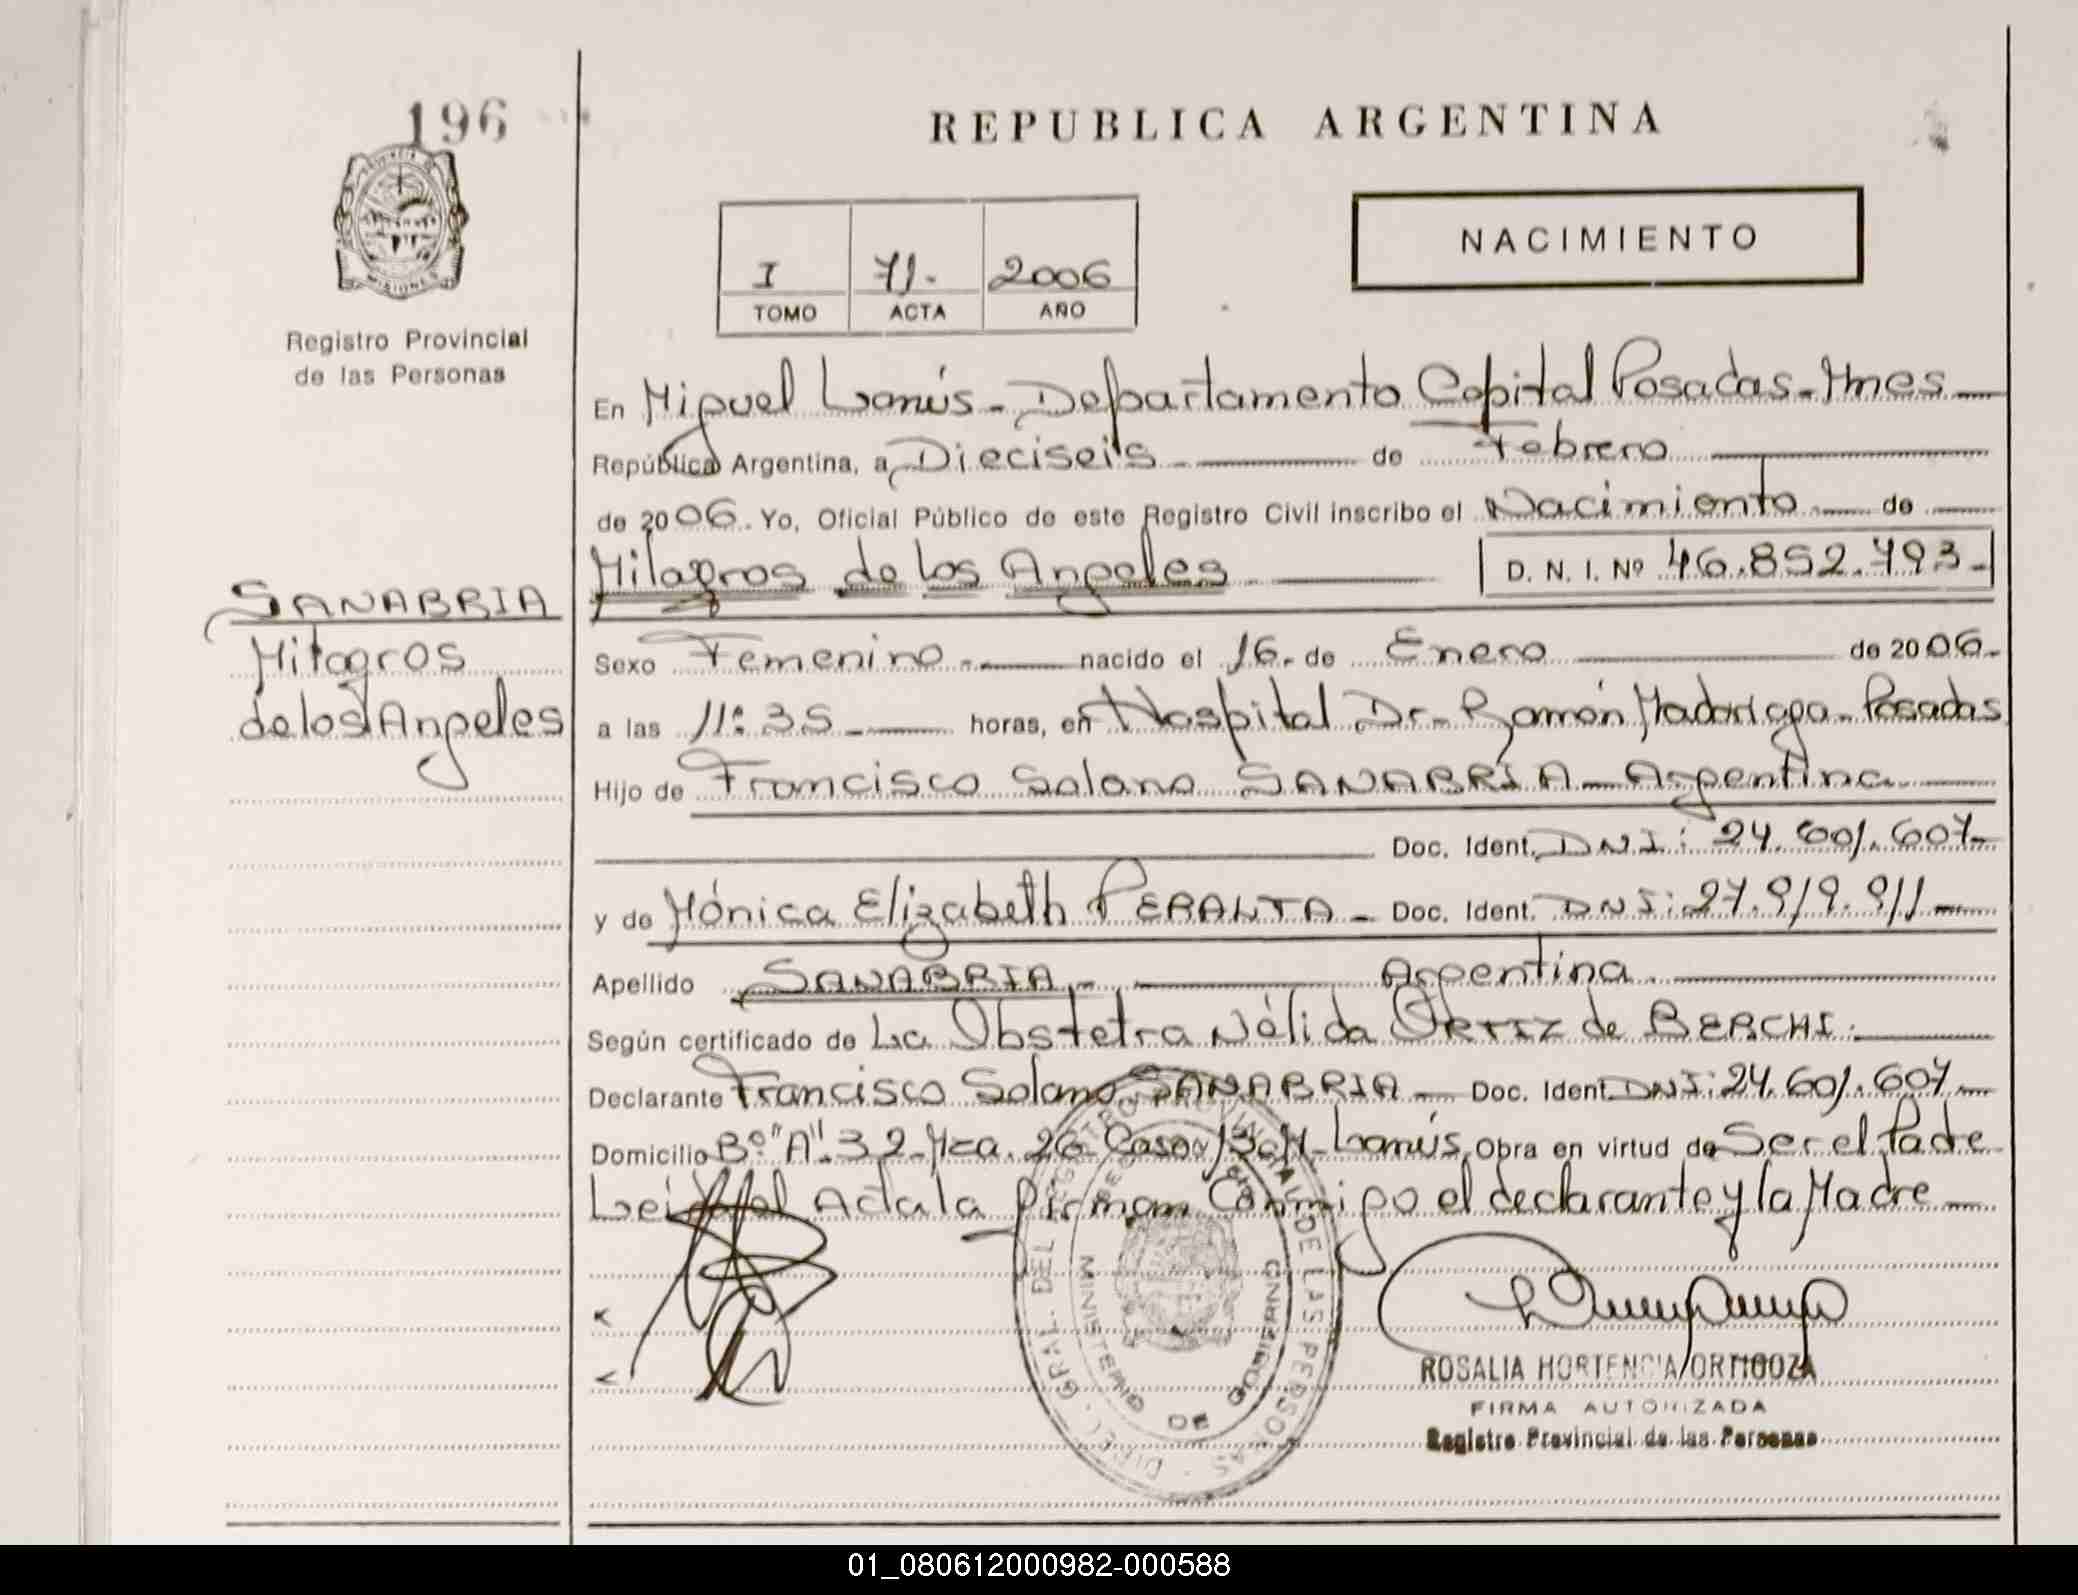 196
REPUBLICA ARGENTINA
PROVINCIA DE MISIONES
Registro Provincial
de las Personas
NACIMIENTO
I 71.- 2006
TOMO ACTA AÑO
En Miguel Lanús - Departamento Capital Posadas - Mnes
República Argentina, a Dieciseis de Febrero
de 2006. Yo, Oficial Público de este Registro Civil inscribo el Nacimiento de
Milagros de los Angeles D. N. I. Nº 46.852.793.-
SANABRIA
Milagros
de los Angeles
Sexo Femenino.- nacido el 16.- de Enero de 2006.-
a las 11:35 horas, en Hospital Dr. Ramón Madariaga - Posadas
Hijo de Francisco Solano SANABRIA - Argentina
Doc. Ident. DNI: 24.601.607-
y de Mónica Elizabeth PERALTA - Doc. Ident. DNI: 27.919.911-
Apellido SANABRIA.- Argentina.
Según certificado de La Obstetra Nélida ORTIZ de BERCHI.
Declarante Francisco Solano SANABRIA - Doc. Ident. DNI: 24.601.607.-
Domicilio Bº "A" 32 - Mza. 26 Casa 13 - M - Lanús, Obra en virtud de Ser el Padre
Leida el Acta la firman Conmigo el declarante y la Madre
DIREC. GRAL. DEL REGISTRO PROVINCIAL DE LAS PERSONAS
MINISTERIO DE GOBIERNO
ROSALIA HORTENCIA ORTIGOZA
FIRMA AUTORIZADA
Registro Provincial de las Personas
01_080612000982-000588